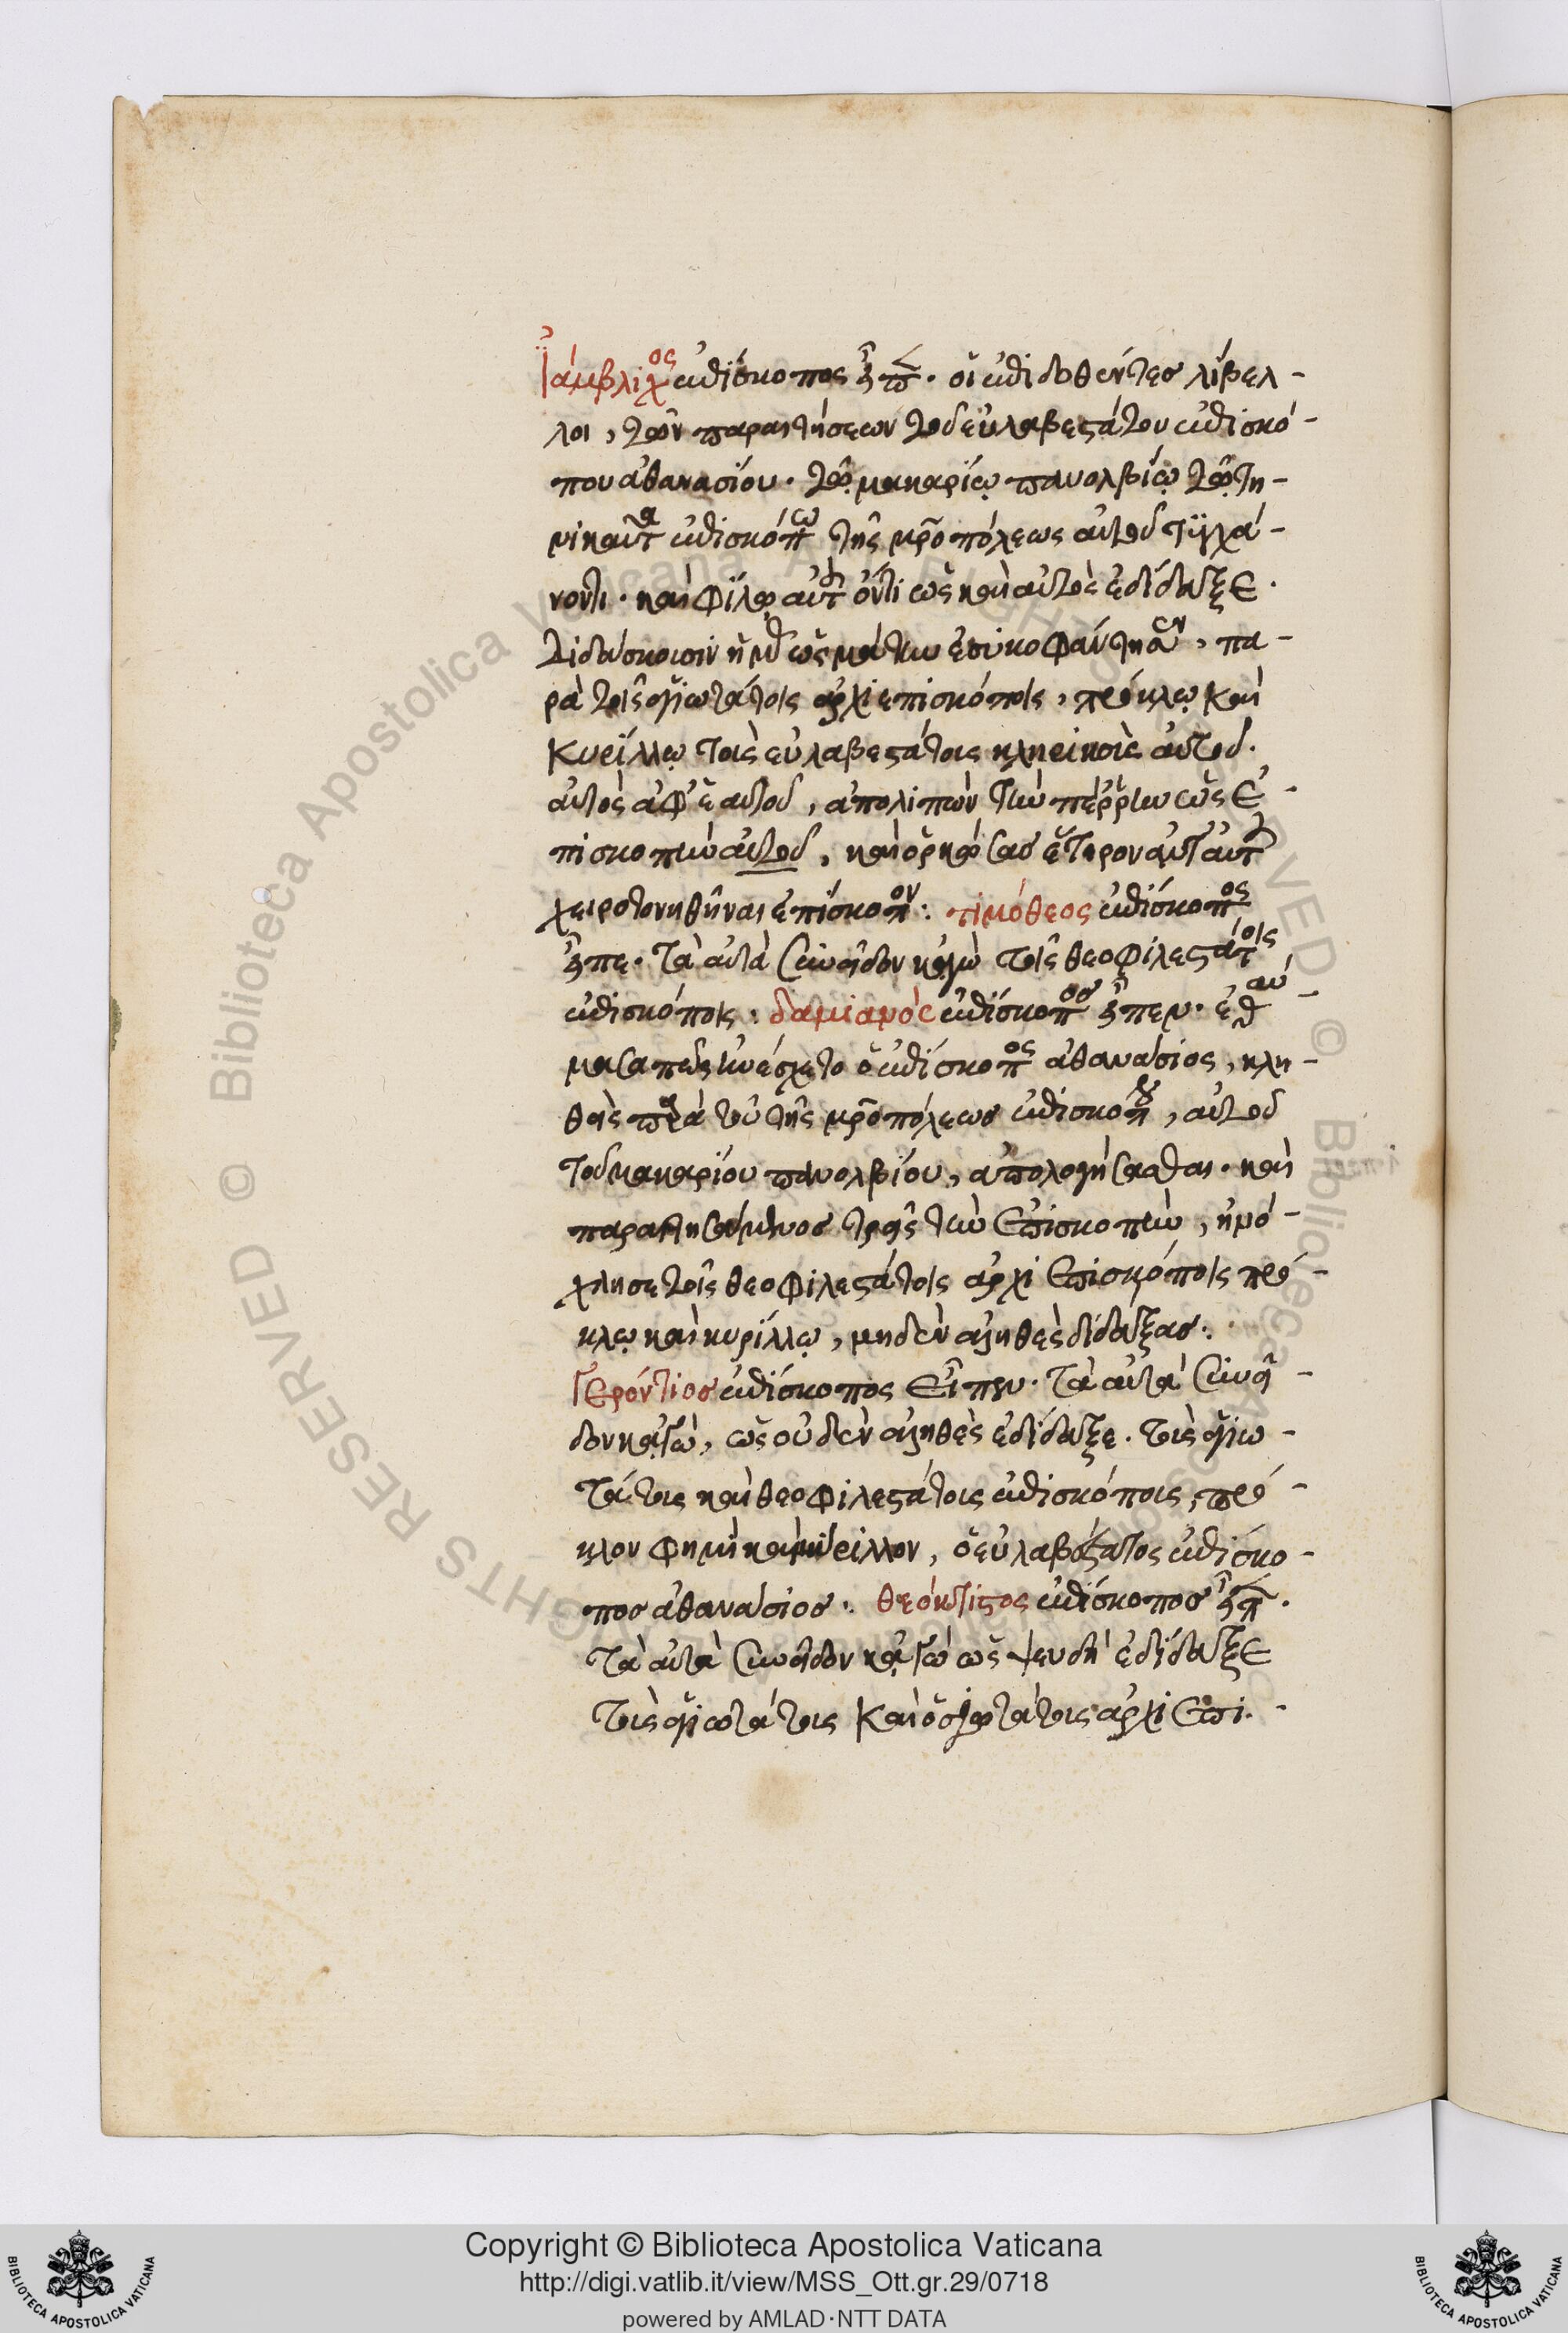 Ἰάμβλιχος ἐπίσκοπος εἶπ. οἱ ἐπιδοθέντες λίβελ-
λοι, τῶν παραιτήσεων τοῦ εὐλαβεστάτου ἐπισκό-
που ἀθανασίου. τῶ μακαρίω πανολβίω τῶ τη-
νικαῦτα ἐπισκόπω τῆς μροπόλεως αὐτοῦ τυγχά-
νοντι. καὶ φίλω αὐτῶ ὄντι ὡς καὶ αὐτὸς ἐδίδαξε.
διδάσκουσιν ἡμᾶς ὡς μάτην ἐσυκοφάντησεν, πα-
ρὰ τοῖς ἁγιωτάτοις ἀρχιεπισκόποις, πρόκλω καὶ
Κυρίλλω τοὺς εὐλαβεστάτους κληρικοὺς αὐτοῦ.
αὐτὸς ἀφ' ἑαυτοῦ, ἀπολιπὼν τὴν πέρρην ὡς ἐ-
πισκοπὴν αὐτοῦ, καὶ ὁρκώσας ἕτερον ἀντ' αὐτοῦ
χειροτονηθῆναι ἐπίσκοπον: τιμόθεος ἐπίσκοπος
εἶπε. τὰ αὐτὰ σύνοιδον κἀγὼ τοῖς θεοφιλεστάτοις
ἐπισκόποις: δαμιανὸς ἐπίσκοπος εἶπεν. ἐθαύ-
μασα πῶς οὐκ ἠνέσχετο ὁ ἐπίσκοπος ἀθανάσιος, κλη-
θεὶς παρὰ τοῦ τῆς μροπόλεως ἐπισκόπου, αὐτοῦ
τοῦ μακαρίου πανολβίου, ἀπολογήσασθαι. καὶ
παραιτησάμενος τρεῖς τὴν ἐπισκοπὴν, ἠνό-
χλησε τοῖς θεοφιλεστάτοις ἀρχιεπισκόποις πρό-
κλω καὶ κυρίλλω, μηδὲν ἀληθὲς διδάξας:
Γερόντιος ἐπίσκοπος εἶπεν. τὰ αὐτὰ σύνοι-
δον κἀγὼ, ὡς οὐδὲν ἀληθὲς ἐδίδαξε. τοὺς ἁγιω-
τάτους καὶ θεοφιλεστάτους ἐπισκόπους, πρό-
κλον φημὶ καὶ κύριλλον, ὁ εὐλαβέστατος ἐπίσκο-
πος ἀθανάσιος: θεόκτιστος ἐπίσκοπος εἶπ.
τὰ αὐτὰ σύνοιδον κἀγὼ ὡς ψευδῆ ἐδίδαξε
τοὺς ἁγιωτάτους καὶ ὁσιωτάτους ἀρχιεπι-
Copyright © Biblioteca Apostolica Vaticana
http://digi.vatlib.it/view/MSS_Ott.gr.29/0718
powered by AMLAD·NTT DATA